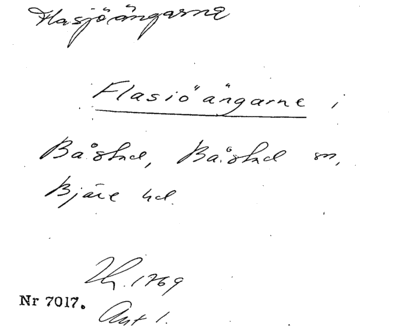 Flasjöängarne
Flasiöängarne i
Båstad, Båstad sn,
Bjäre hd.
Lh. 1769
Nr 7017.
Akt 1.